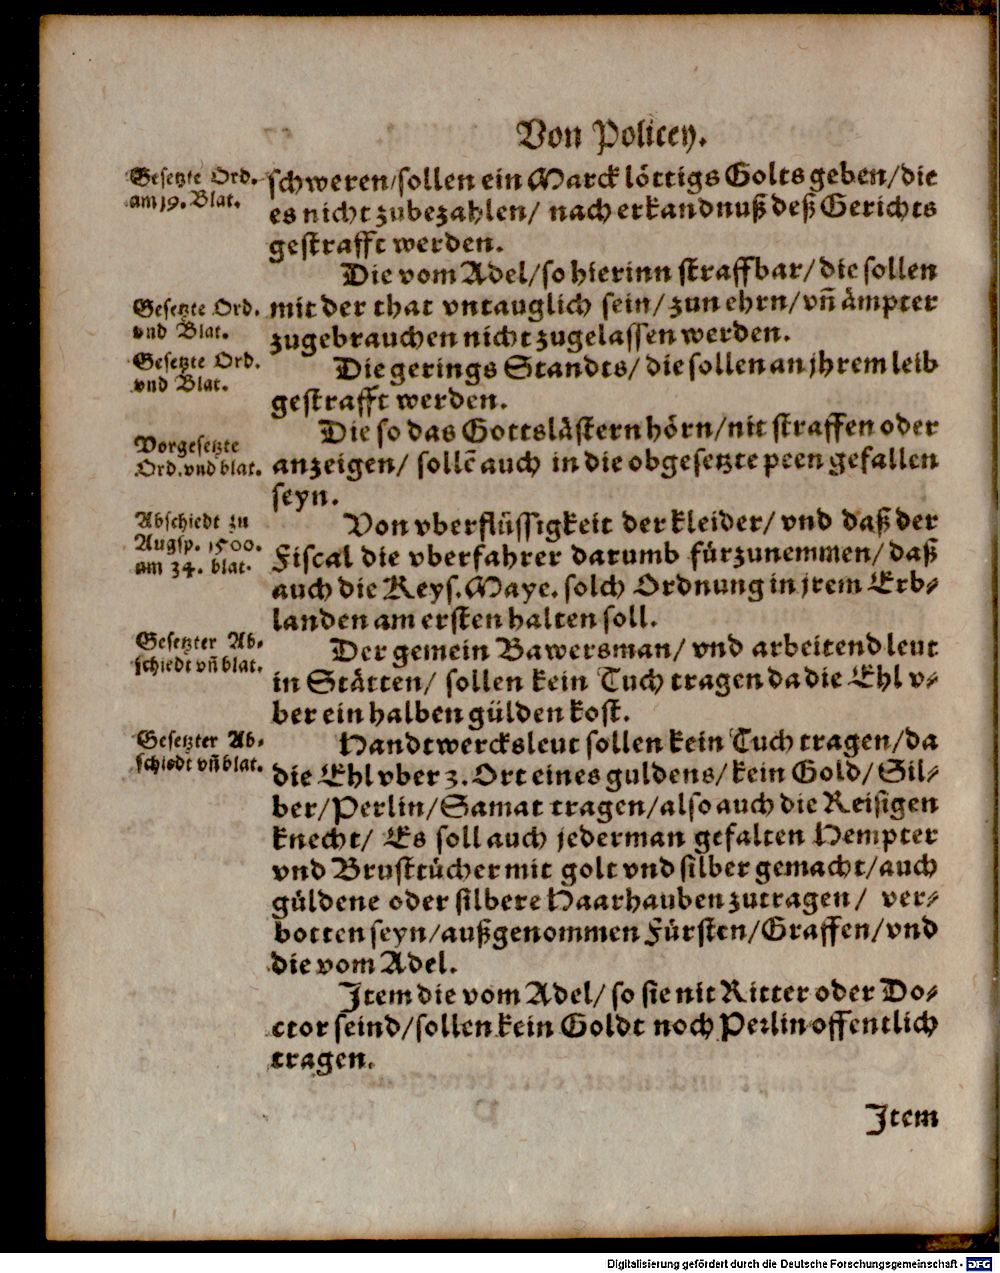 Von Policey.
Gesetzte Ord.
am 19. Blat.
schweren/sollen ein Marck löttigs Golts geben/die
es nicht zubezahlen/ nach erkandnuß deß Gerichts
gestrafft werden.
Die vom Adel/so hierinn straffbar/die sollen
Gesetzte Ord.
vnd Blat.
mit der that vntauglich sein/zun ehrn/vñ ämpter
zugebrauchen nicht zugelassen werden.
Gesetzte Ord.
vnd Blat.
Die gerings Standts/ die sollen an jhrem leib
gestrafft werden.
Die so das Gottslästern hörn/nit straffen oder
Vorgesetzte
Ord. vnd blat.
anzeigen/ sollē auch in die obgesetzte peen gefallen
seyn.
Abschiedt zu
Augsp. 1500.
am 34. blat.
Von vberflüssigkeit der kleider/ vnd daß der
Fiscal die vberfahrer darumb fürzunemmen/daß
auch die Keys. Maye. solch Ordnung in jrem Erb-
landen am ersten halten soll.
Gesetzter Ab-
schiedt vñ blat.
Der gemein Bawersman/ vnd arbeitend leut
in Stätten/ sollen kein Tuch tragen da die Ehl v-
ber ein halben gülden kost.
Gesetzter Ab-
schiedt vñ blat.
Handtwercksleut sollen kein Tuch tragen/da
die Ehl vber 3. Ort eines guldens/kein Gold/Sil-
ber/Perlin/Samat tragen/also auch die Reisigen
knecht/ Es soll auch jederman gefalten Hempter
vnd Brusttücher mit golt vnd silber gemacht/auch
güldene oder silbere Haarhauben zutragen/ ver-
botten seyn/außgenommen Fürsten/Graffen/vnd
die vom Adel.
Item die vom Adel/ so sie nit Ritter oder Do-
ctor seind/sollen kein Goldt noch Perlin offentlich
tragen.
Item
Digitalisierung gefördert durch die Deutsche Forschungsgemeinschaft - DFG